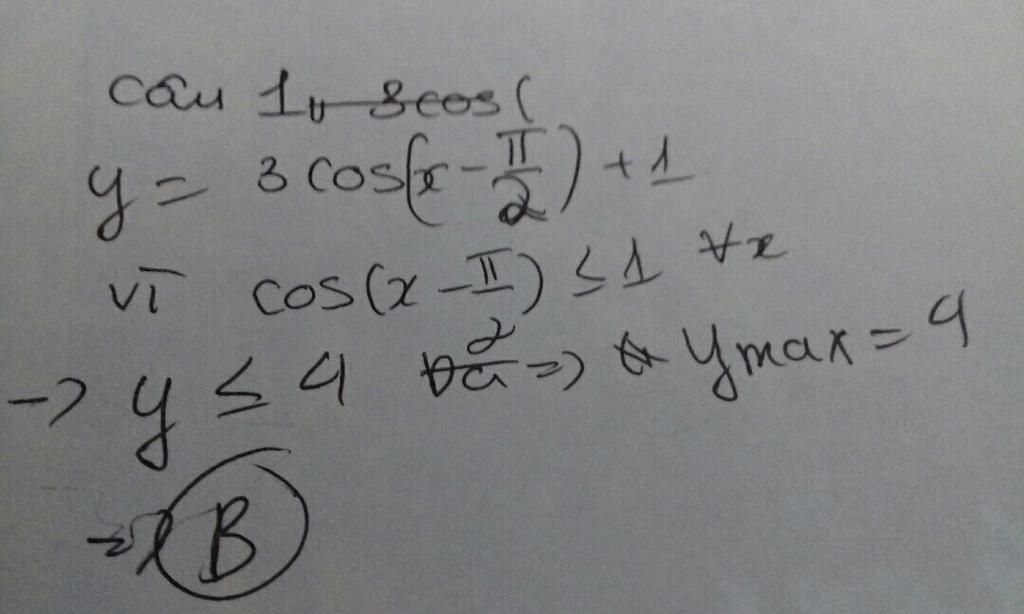 câu 1, 3cos(
y = 3 cos(x - π/2) + 1
vì cos(x - π/2) ≤ 1 ∀x
-> y ≤ 4 => ymax = 4
=> B